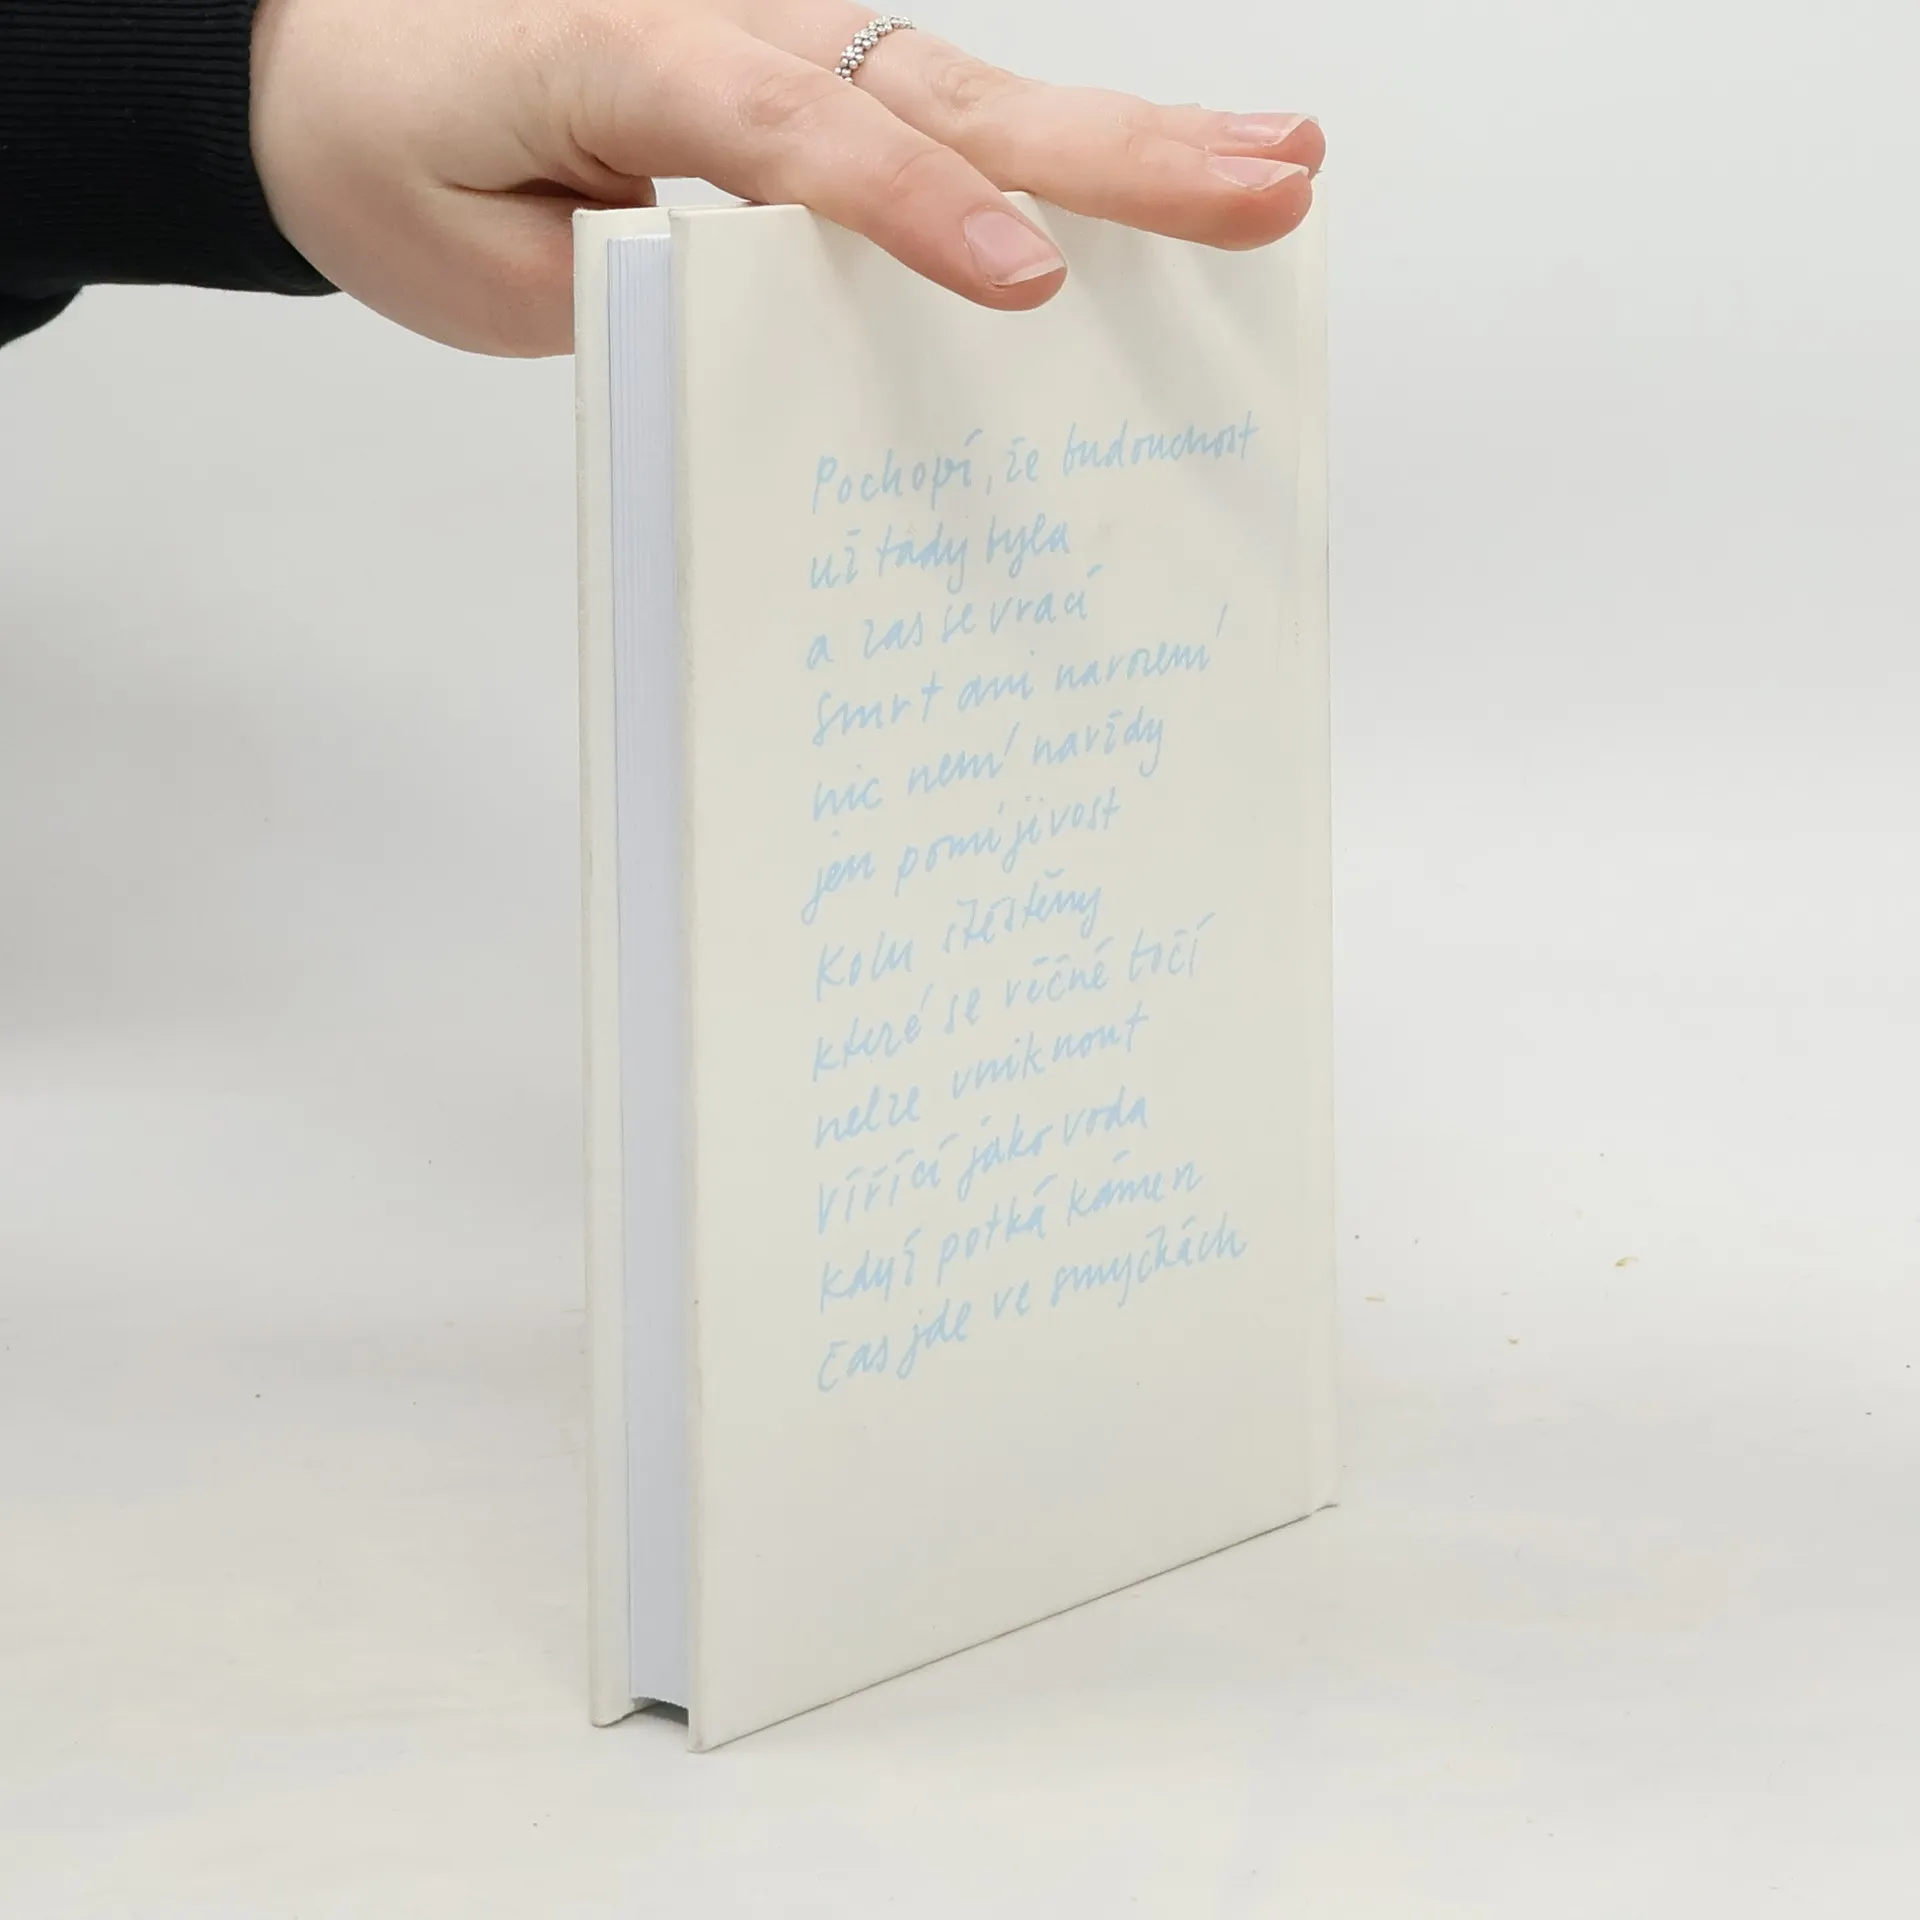 Pochopí, že budoucnost
už tady byla
a zas se vrací
smrt ani narození
nic není navždy
jen pomíjivost
kolu štěstěny
které se věčně točí
nelze uniknout
vířící jako voda
když potká kámen
čas jde ve smyčkách